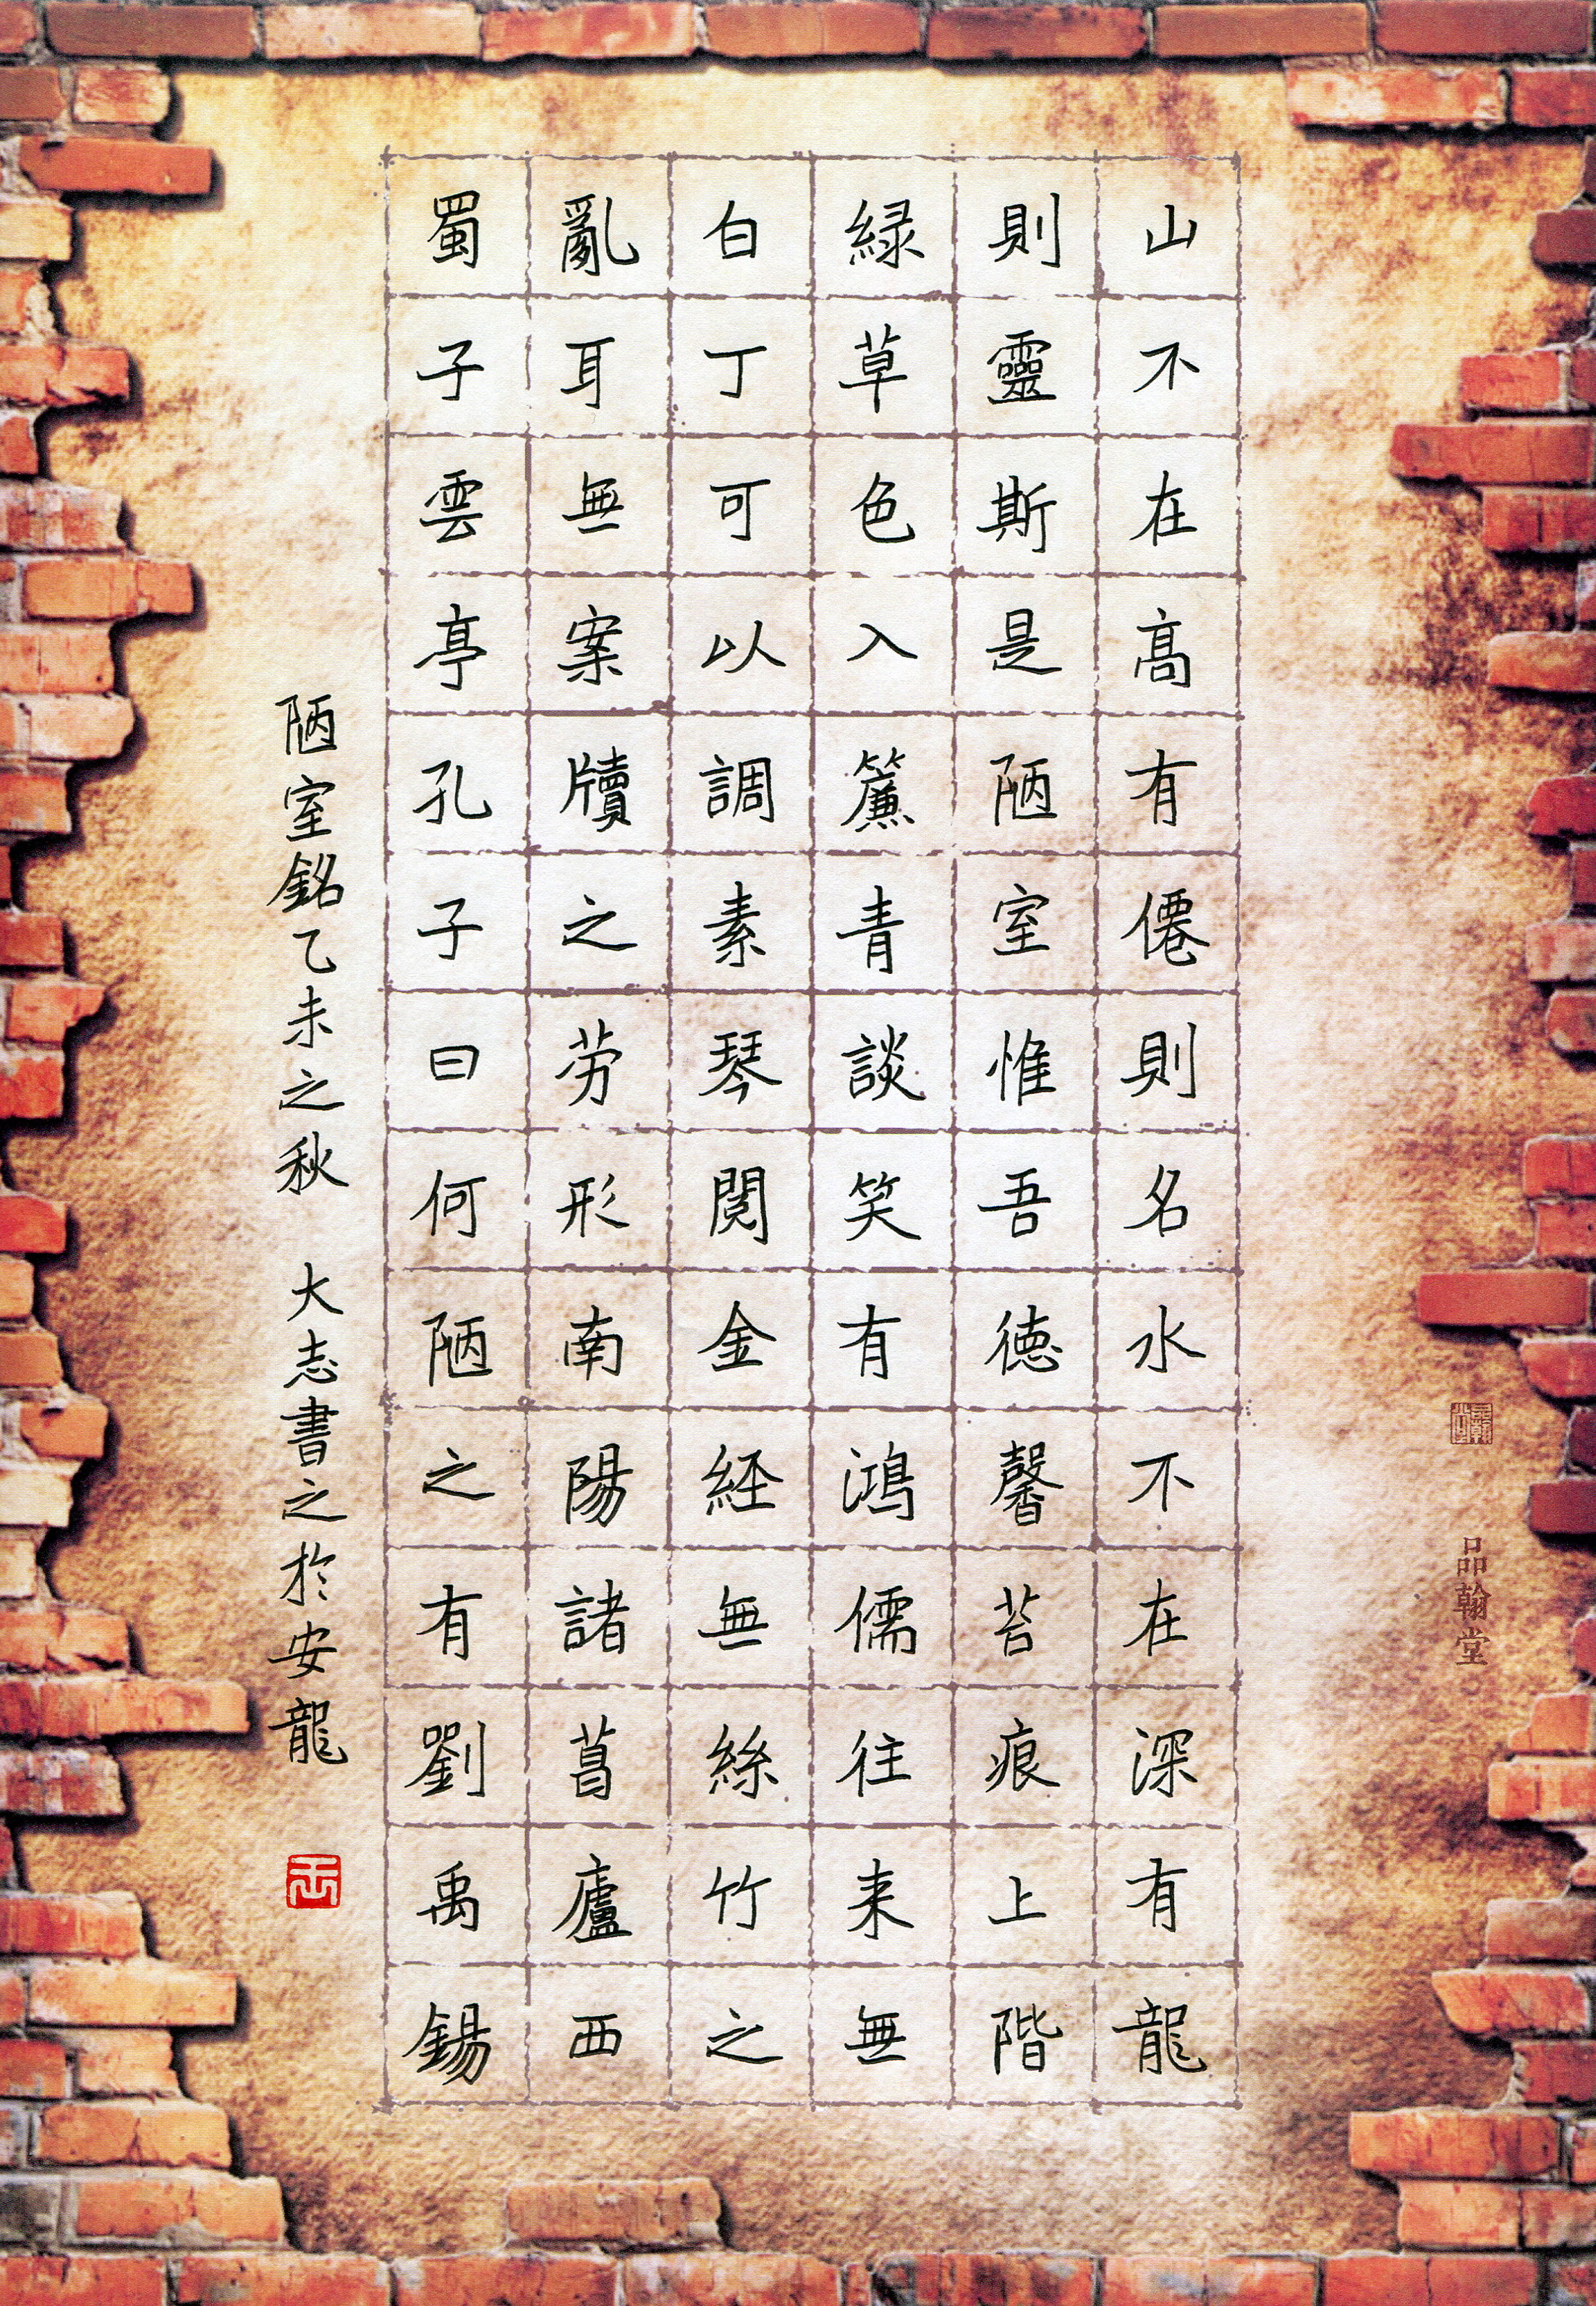 山不在高有僊則名水不在深有龍
則靈斯是陋室惟吾德馨苔痕上階
緑草色入簾青談笑有鴻儒往来無
白丁可以調素琴閱金経無絲竹之
亂耳無案牘之劳形南陽諸葛廬西
蜀子雲亭孔子曰何陋之有劉禹錫
陋室銘乙未之秋 大志書之於安龍
品翰堂